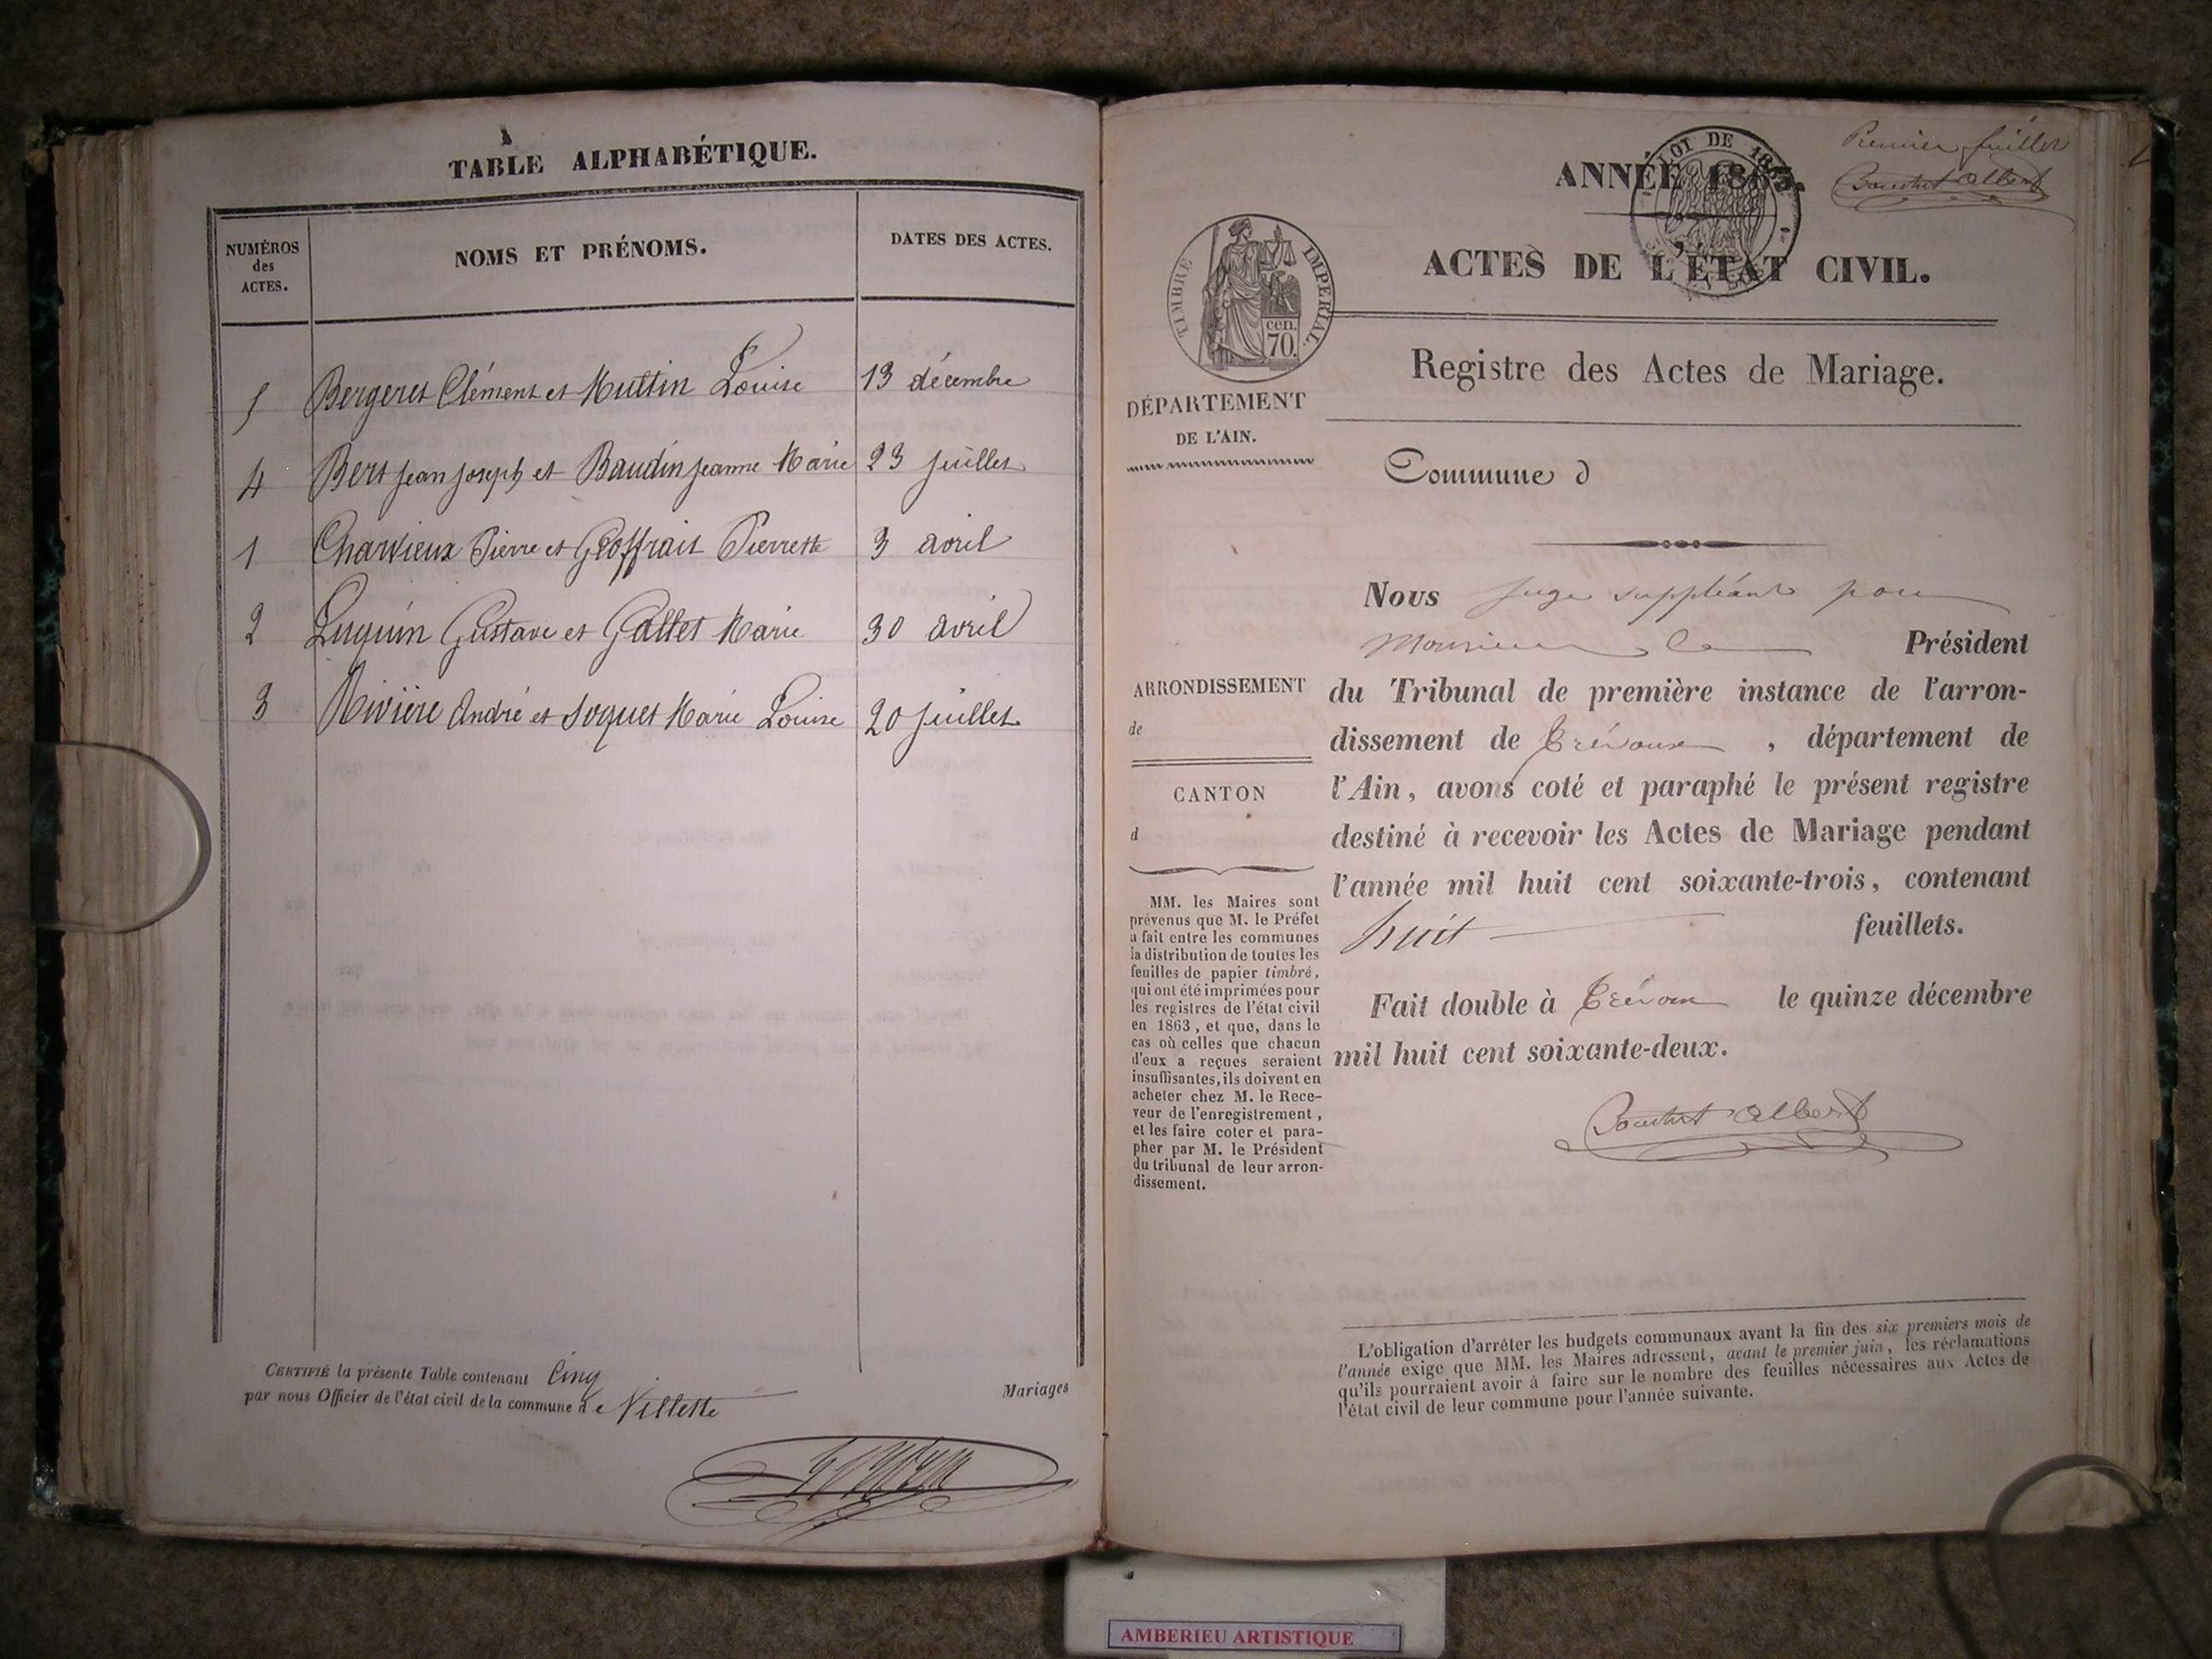 TABLE ALPHABÉTIQUE.
NUMÉROS des ACTES.
NOMS ET PRÉNOMS.
DATES DES ACTES.
5 Bergeret Clément et Muttin Louise 13 décembre
4 Bert Jean Joseph et Baudin Jeanne Marie 23 juillet
1 Charvieux Pierre et Geoffrait Pierrette 3 avril
2 Luquin Gustave et Gallet Marie 30 avril
3 Rivière André et Soquet Marie Louise 20 juillet
CERTIFIÉ la présente Table contenant Cinq Mariages
par nous Officier de l'état civil de la commune de Villette
Premier feuillet
LOI DE
ANNÉE 1863.
ACTES DE L'ÉTAT CIVIL.
TIMBRE IMPERIAL
cen.
70.
Registre des Actes de Mariage.
DÉPARTEMENT
DE L'AIN.
Commune d
Nous Juge suppléant pour
Monsieur le Président
du Tribunal de première instance de l'arron-
dissement de Trévoux, département de
l'Ain, avons coté et paraphé le présent registre
destiné à recevoir les Actes de Mariage pendant
l'année mil huit cent soixante-trois, contenant
huit feuillets.
Fait double à Trévoux le quinze décembre
mil huit cent soixante-deux.
ARRONDISSEMENT
de
CANTON
d
MM. les Maires sont
prévenus que M. le Préfet
a fait entre les communes
la distribution de toutes les
feuilles de papier timbré,
qui ont été imprimées pour
les registres de l'état civil
en 1863, et que, dans le
cas où celles que chacun
d'eux a reçues seraient
insuffisantes, ils doivent en
acheter chez M. le Rece-
veur de l'enregistrement,
et les faire coter et para-
pher par M. le Président
du tribunal de leur arron-
dissement.
L'obligation d'arrêter les budgets communaux avant la fin des six premiers mois de
l'année exige que MM. les Maires adressent, avant le premier juin, les réclamations
qu'ils pourraient avoir à faire sur le nombre des feuilles nécessaires aux Actes de
l'état civil de leur commune pour l'année suivante.
AMBERIEU ARTISTIQUE